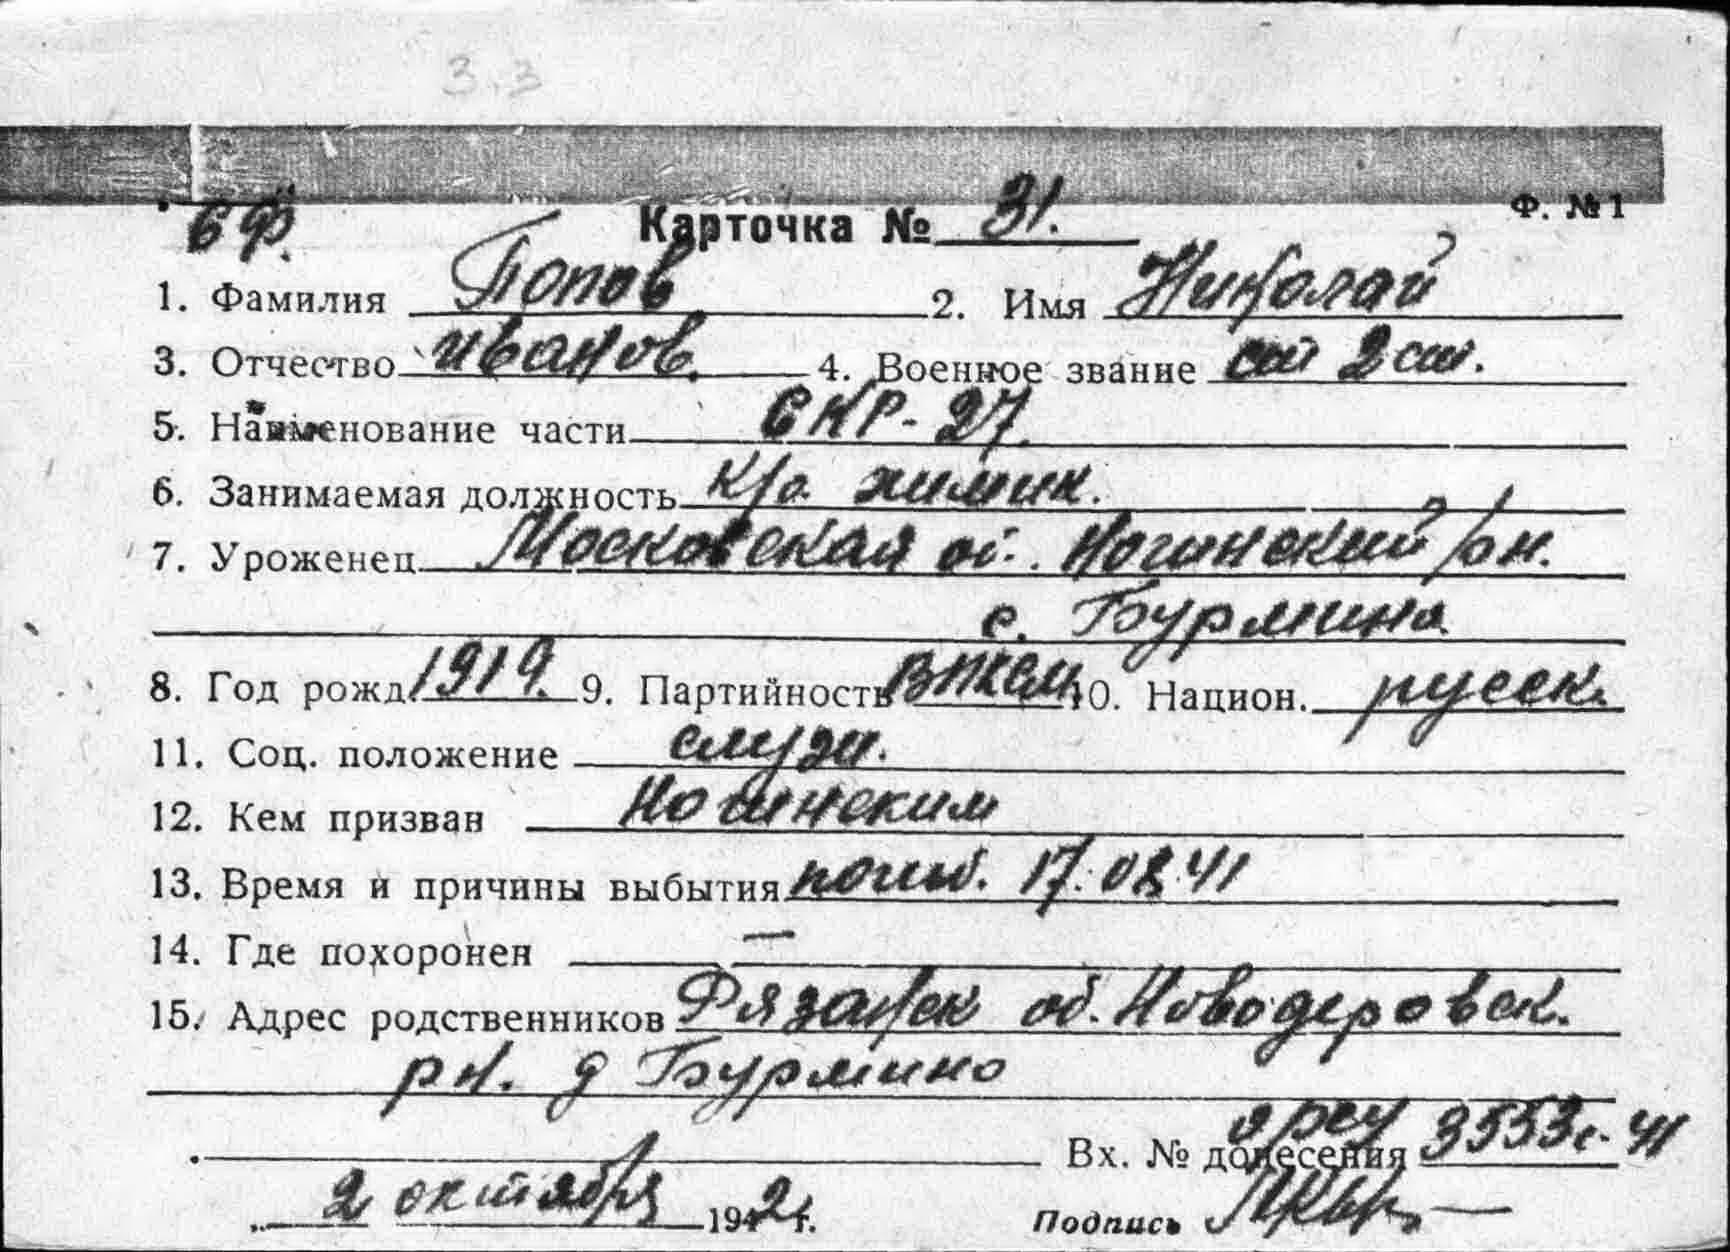 3.3
БФ.
Карточка № 31. Ф. № 1
1. Фамилия Попов 2. Имя Николай
3. Отчество Иванов. 4. Военное звание ст 2 ст.
5. Наименование части СКР-27.
6. Занимаемая должность к/о химик.
7. Уроженец Московская об. Ногинский р/он.
с. Бурмина
8. Год рожд. 1919. 9. Партийность ВЛКСМ 10. Национ. русск.
11. Соц. положение служ.
12. Кем призван Ногинским
13. Время и причины выбытия погиб. 17.08.41
14. Где похоронен —
15. Адрес родственников Рязанск об. Новодеровск.
рн. д Бурмино
Вх. № донесения 3553с. 41
2 октября 1942 г. Подпись